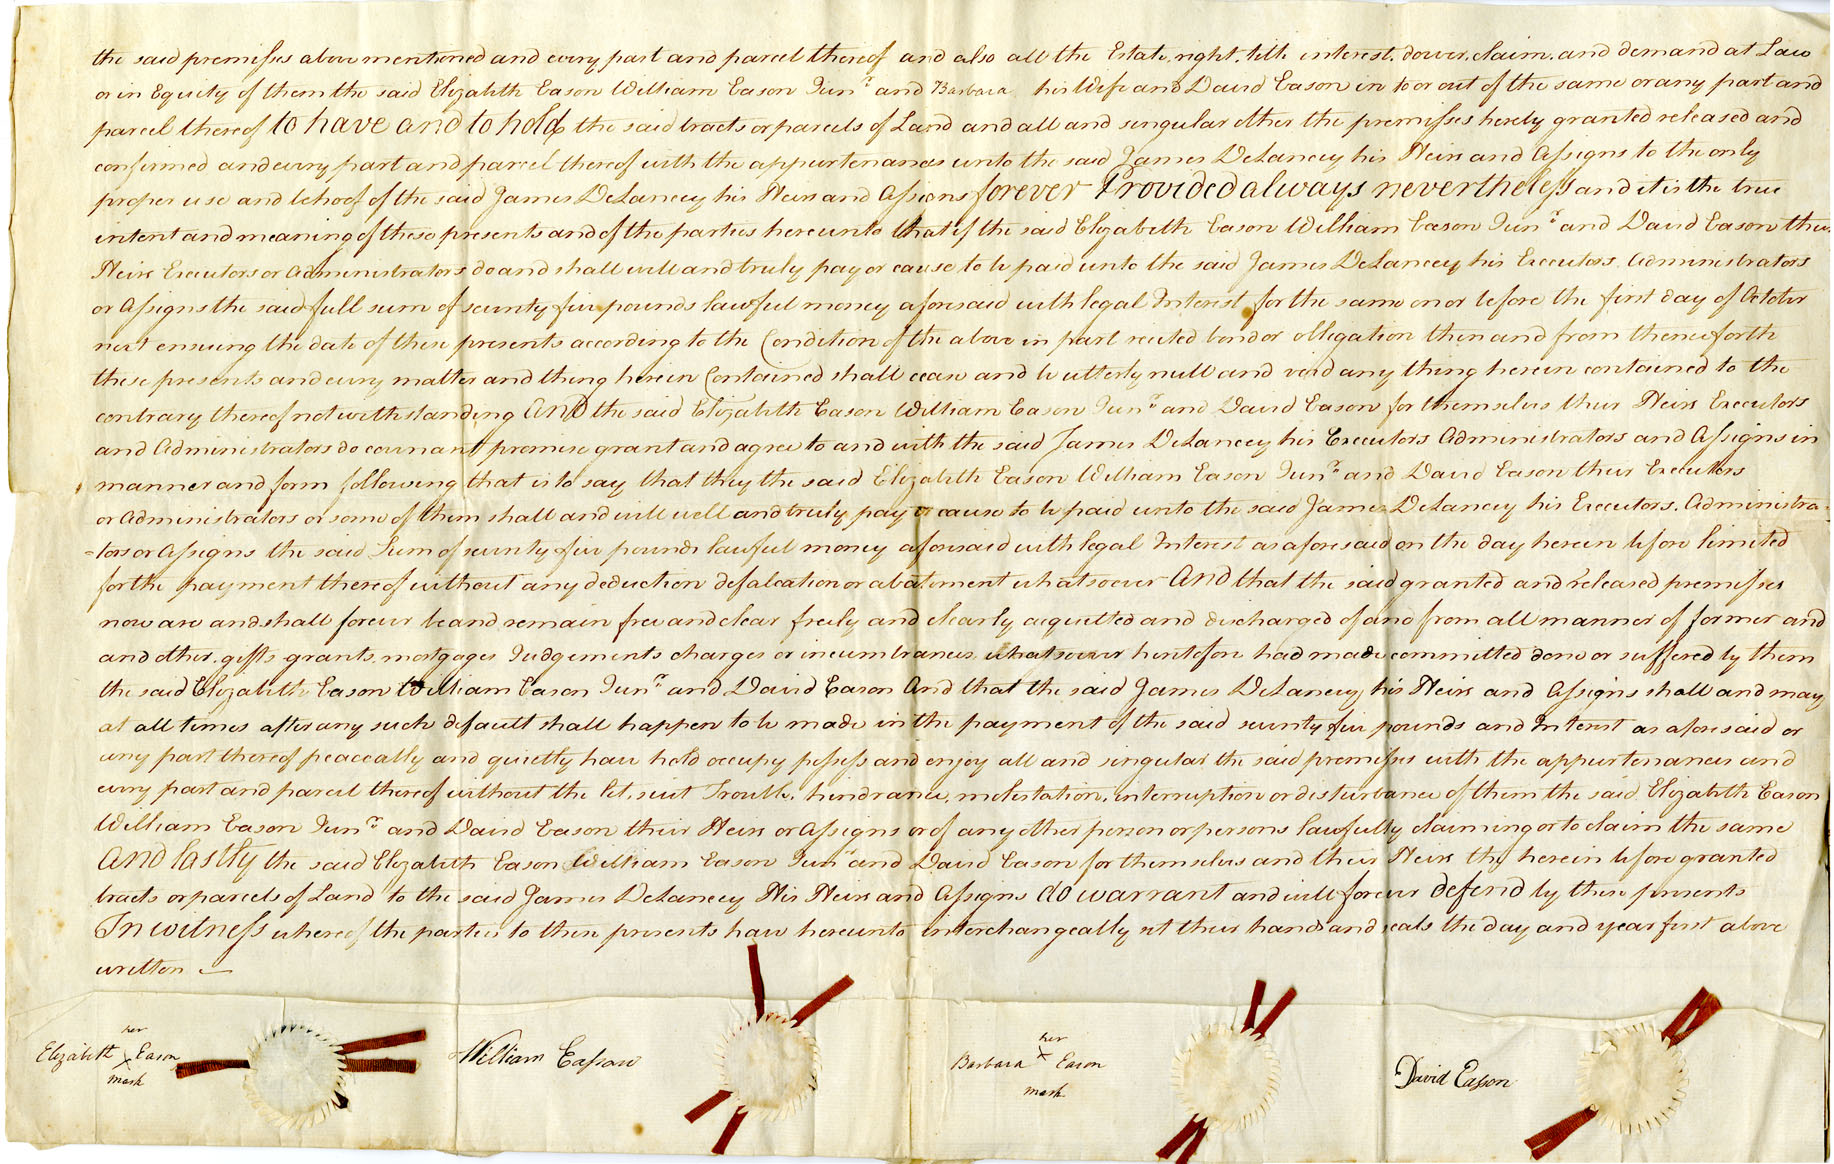 the said premisses above mentioned and every part and parcel thereof and also all the Estate, right, title interest, dower, claim, and demand at Law
or in Equity of them the said Elizabeth Eason William Eason Junr. and Barbara his Wife and David Eason in to or out of the same or any part and
parcel thereof to have and to hold the said tracts or parcels of Land and all and singular other the premisses hereby granted released and
confirmed and every part and parcel thereof with the appurtenances unto the said James DeLancey his Heirs and Assigns to the only
proper use and behoof of the said James DeLancey his Heirs and Assigns forever Provided always nevertheless and it is the true
intent and meaning of these presents and of the parties hereunto that if the said Elizabeth Eason William Eason Junr. and David Eason their
Heirs Executors or Administrators do and shall well and truly pay or cause to be paid unto the said James DeLancey his Executors, Administrators
or Assigns the said full sum of seventy five pounds lawful money aforesaid with legal Interest for the same on or before the first day of October
next ensuing the date of these presents according to the Condition of the above in part recited bond or obligation then and from thenceforth
these presents and every matter and thing herein Contained shall cease and be utterly null and void any thing herein contained to the
contrary thereof notwithstanding And the said Elizabeth Eason William Eason Junr. and David Eason for themselves their Heirs Executors
and Administrators do covenant promise grant and agree to and with the said James DeLancey his Executors Administrators and Assigns in
manner and form following that is to say that they the said Elizabeth Eason William Eason Junr. and David Eason their Executors
or Administrators or some of them shall and will well and truly pay or cause to be paid unto the said James DeLancey his Executors, Administra-
-tors or Assigns the said Sum of seventy five pounds lawful money aforesaid with legal Interest as aforesaid on the day herein before limited
for the payment thereof without any deduction defalcation or abatement whatsoever And that the said granted and released premisses
now are and shall forever be and remain free and clear freely and clearly acquitted and discharged of and from all manner of former and
and other gifts grants, mortgages Judgements charges or incumbrances whatsoever heretofore had made committed done or suffered by them
the said Elizabeth Eason William Eason Junr. and David Eason And that the said James DeLancey his Heirs and Assigns shall and may
at all times after any such default shall happen to be made in the payment of the said seventy five pounds and Interest as aforesaid or
any part thereof peaceably and quietly have hold occupy possess and enjoy all and singular the said premisses with the appurtenances and
every part and parcel thereof without the let, suit Trouble, hindrance, molestation, interruption or disturbance of them the said Elizabeth Eason
William Eason Junr. and David Eason their Heirs or Assigns or of any other person or persons lawfully claiming or to claim the same
And lastly the said Elizabeth Eason William Eason Junr. and David Eason for themselves and their Heirs the herein before granted
tracts or parcels of Land to the said James DeLancey His Heirs and Assigns do warrant and will forever defend by these presents
In witness whereof the parties to these presents have hereunto interchangeably set their hands and seals the day and year first above
written
her
Elizabeth X Eason
mark
William Easson
her
Barbara X Eason
mark
David Easson